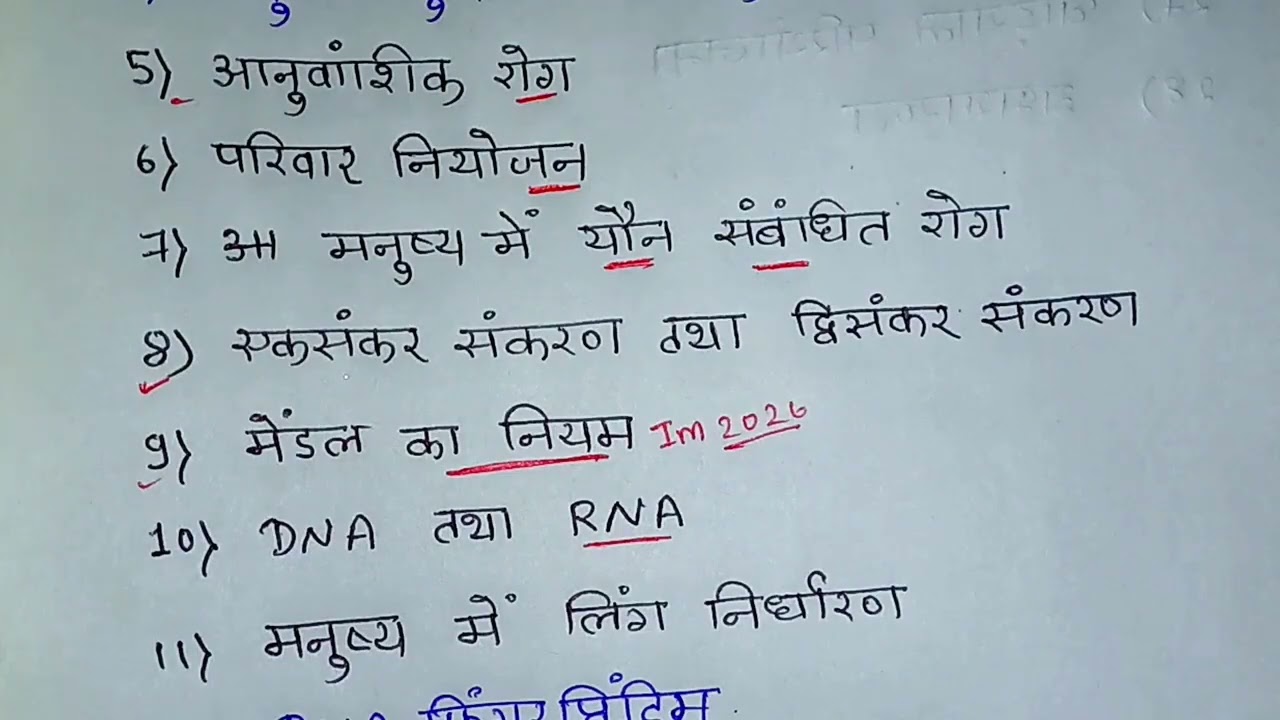 5) आनुवांशिक रोग
6) परिवार नियोजन
7) आ मनुष्य में यौन संबंधित रोग
8) एकसंकर संकरण तथा द्विसंकर संकरण
9) मेंडल का नियम Im 2026
10) DNA तथा RNA
11) मनुष्य में लिंग निर्धारण